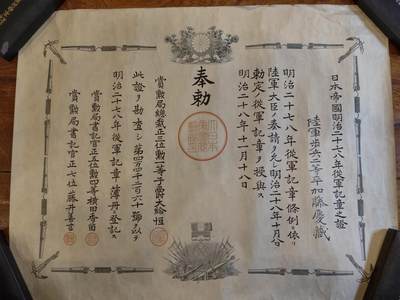 日本帝國明治二十七八年從軍記章之證
陸軍歩兵二等卒加藤慶藏
明治二十七八年從軍記章條例ニ依リ
陸軍大臣ノ奏請ヲ允シ明治二十八年十月
勅定ノ從軍記章ヲ授與ス
明治二十八年十一月十八日
奉勅
賞勲局總裁正三位勲一等子爵大給恒
此證ヲ勘査シ第四万四千二百六十號ヲ以テ
明治二十七八年從軍記章簿冊ニ登記ス
賞勲局書記官正五位勲四等横田香苗
賞勲局書記官正七位藤井善言